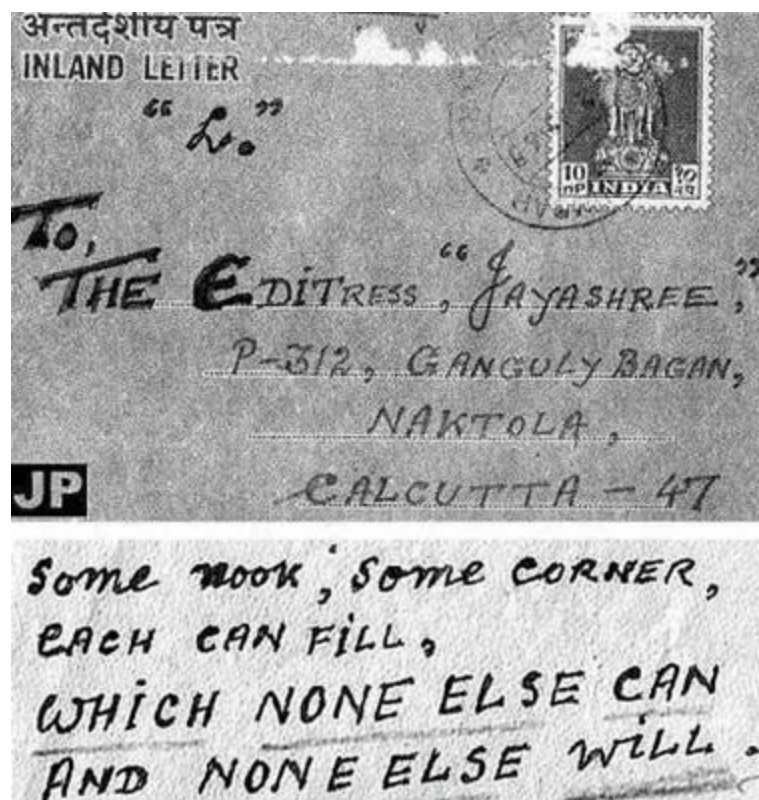 अन्तर्देशीय पत्र
INLAND LETTER
“L.”
10 nP INDIA १०
To,
THE EDITRESS, “JAYASHREE,”
P-312, GANGULY BAGAN,
NAKTOLA,
CALCUTTA - 47
JP
Some nook, some CORNER,
EACH CAN FILL,
WHICH NONE ELSE CAN
AND NONE ELSE WILL.